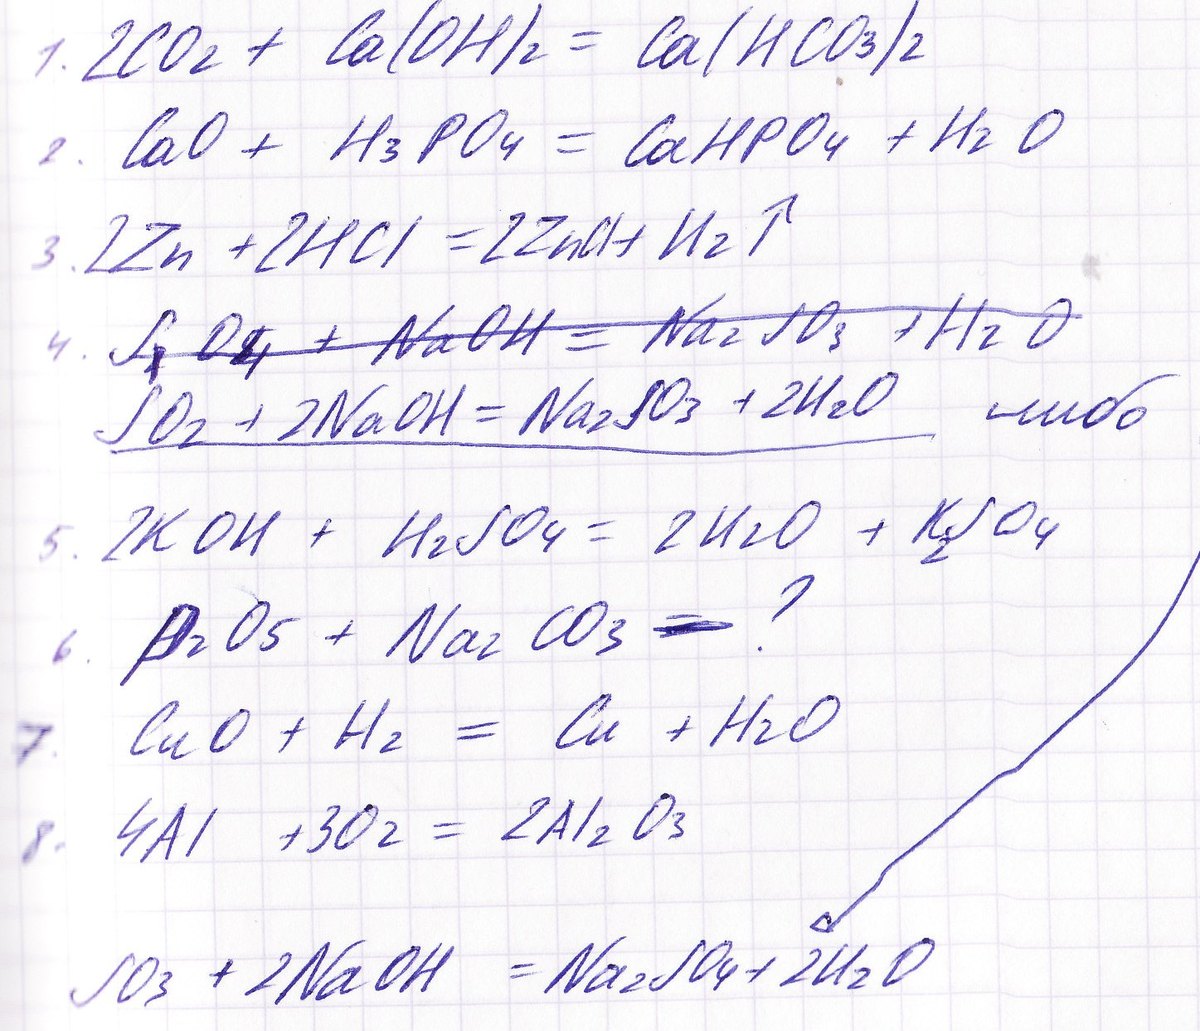 1. 2CO₂ + Ca(OH)₂ = Ca(HCO₃)₂
2. CaO + H₃PO₄ = CaHPO₄ + H₂O
3. 2Zn + 2HCl = 2ZnCl + H₂↑
4. + NaOH = Na₂SO₃ + H₂O
SO₂ + 2NaOH = Na₂SO₃ + 2H₂O либо
5. 2KOH + H₂SO₄ = 2H₂O + K₂SO₄
6. P₂O₅ + Na₂CO₃ = ?
7. CuO + H₂ = Cu + H₂O
8. 4Al + 3O₂ = 2Al₂O₃
SO₃ + 2NaOH = Na₂SO₄ + 2H₂O